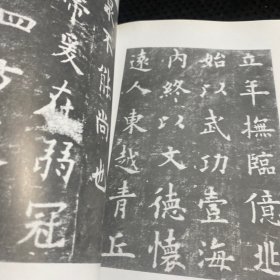 不能尚也
帝爰在弱冠
四方
立年撫臨億兆
始以武功壹海
內終以文德懷
遠人東越青丘